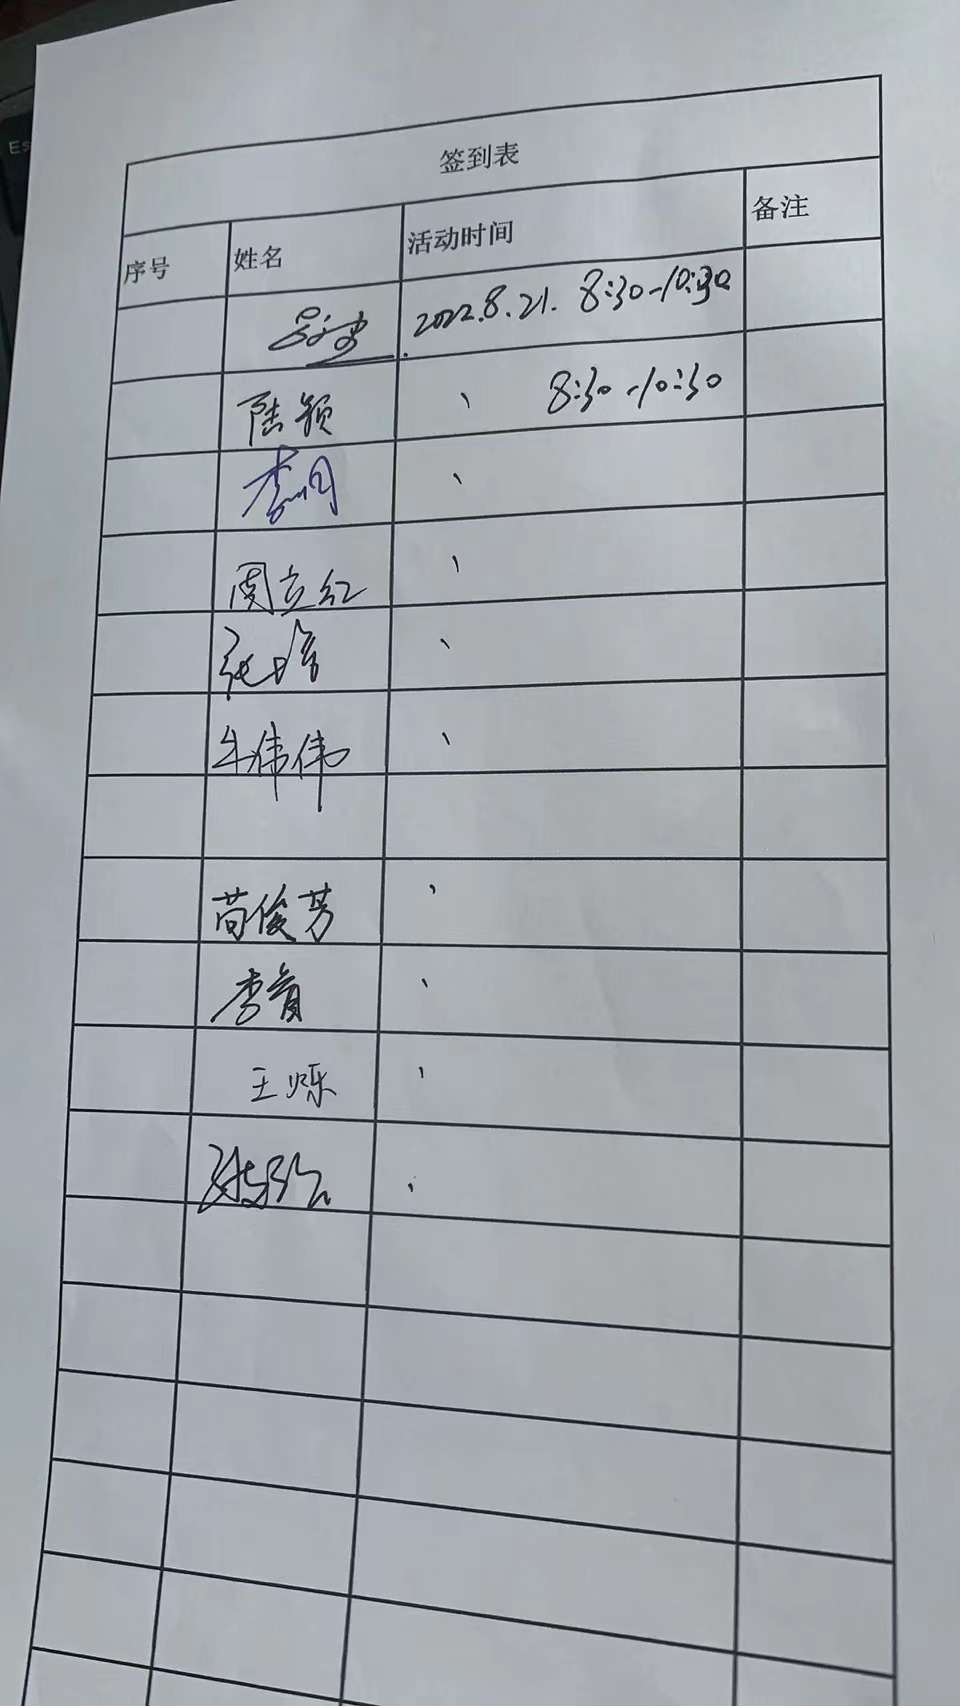 Es
签到表
序号 姓名 活动时间 备注
2022.8.21. 8:30-10:30
陆颖 、 8:30-10:30
李明 、
周立红 、
张培 、
牟伟伟 、
苟俊芳 、
李育 、
王烁 、
、